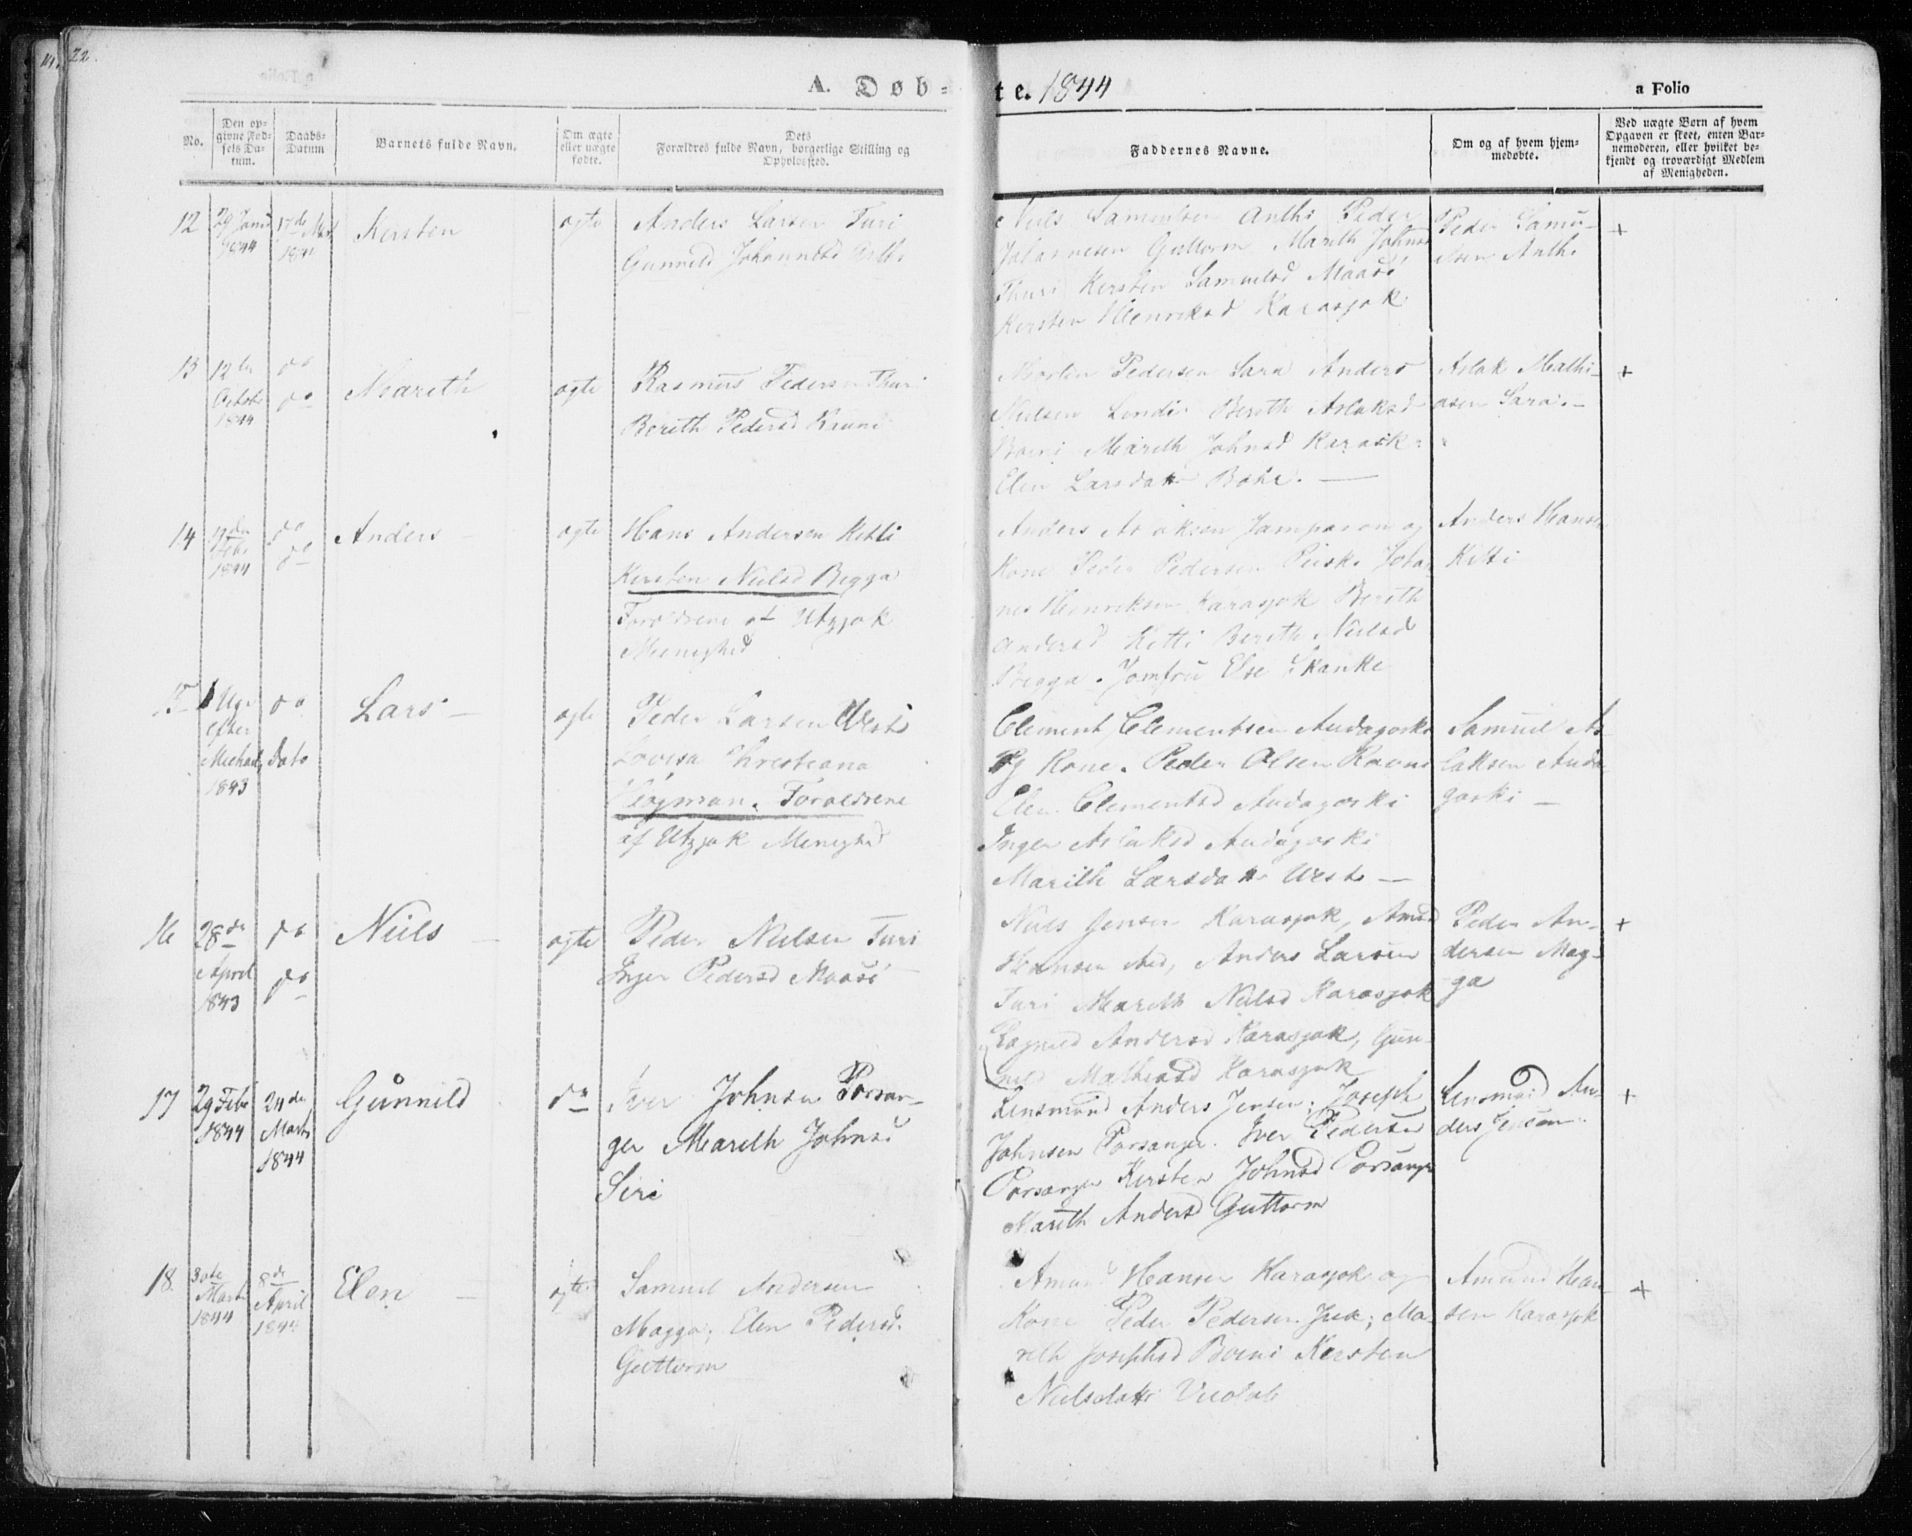 22.
A. Døb=
te. 1844
a Folio
No.
Den op-
givne Fød-
sels Da-
tum.
Daabs-
Datum
Barnets fulde Navn.
Om ægte
eller uægte
fødte.
Dets
Forældres fulde Navn, borgerlige Stilling og
Opholdssted.
Faddernes Navne.
Om og af hvem hjem-
medøbte.
Ved uægte Børn af hvem
Opgaven er skeet, enten Bar-
nemoderen, eller hvilket be-
kjendt og troværdigt Medlem
af Menigheden.
12
29 Janu
1844
17de
Kersten
ægte
Anders Larsen Turi
Gunnild Johannesd
Niels Samuelsen Anthi Peder
Johannesen Guttorm Marith Johnsd
Thuri Kersten Samuelsd Maasø
Kersten Henriksd Karasjok
Peder Samu-
elsen Anthi
+
13
12te
Octobr
1844
do
do
Mareth
ægte
Rasmus Pedersen Thuri
Bereth Pedersd Rauni
Morten Pedersen Sara Anders
Nielsen Bereth Aslaksd
Boini Mareth Johnsd Karask
Elen Larsdatt
Aslak Mathi-
asen Sara.-
+
14
Feb
1844
do
do
Anders
ægte
Hans Andersen Kitti
Kersten Nielsd Begga
Forældrene af Utzjok
Menighed
Anders Aslaksen og
Kone Peder Pedersen Johan
nes Henriksen Karasjok Bereth
Andersd Kitti Bereth Nielsd
Begga. Jomfru Else Skanke
Anders Hansen
Kitti
1 Uge
efter
Michaeli
1843
do
Dato
Lars
ægte
Peder Larsen West
Lovisa Christiana
Högman. Forældrene
af Utzjok Menighed
Clement Clementsen Audagoski
og Kone. Peder Olsen Rauni
Elen Clementsd Audagoski
Inger Aslaksd Audagoski
Marith Larsdatt West
Samuel As-
laksen Auda
goski
16
28de
April
1843
do
do
Niels
ægte
Peder Nielsen Turi
Inger Pedersd Maasø
Niels Jensen Karasjok, Amud
Hansen Anders Larsen
Turi Mareth Nielsd Karasjok
Ragnild Andersd Karasjok, Gun-
nild Mathiasd Karasjok
Peder An-
dersen Mag-
ga
+
17
29 Feb
1844
24de
Marts
1844
Gunnild
do
Iver Johnsen Porsan-
ger Mareth Johnsd
Siri
Lensmand Anders Jensen; Joseph
Johnsen Porsanger. Iver Pedersen
Porsanger Kersten Johnsd Porsanger
Mareth Andersd Guttorm
Lensmand An-
ders Jensen.
+
18
30te
Marts
1844
8de
April
1844
Elen
ægte
Samuel Andersen
Magga; Elen Pedersd.
Guttorm
Amund Hansen Karasjok og
Kone Peder Pedersen Ma-
reth Josephsd Boini Kersten
Nielsdatt
Amund Han-
sen Karasjok
+